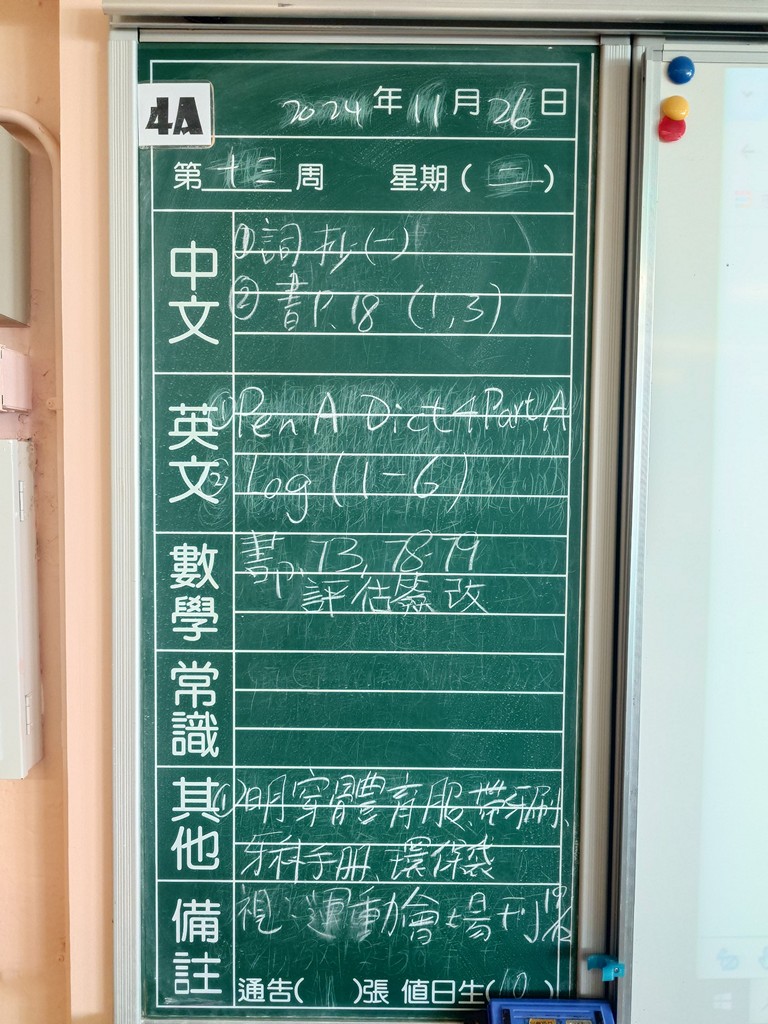 4A
2024年11月26日
第十三周 星期(二)
中文
①詞抄(一)
②書P.18 (1,3)
英文
① Pen A Dict 4 Part A
② log (1-6)
數學
書P. 73, 78-79
評估簽改
常識
其他
① 明穿體育服、帶牙刷、
牙科手冊、環保袋
備註
視:運動會場刊
通告( )張 值日生(10)